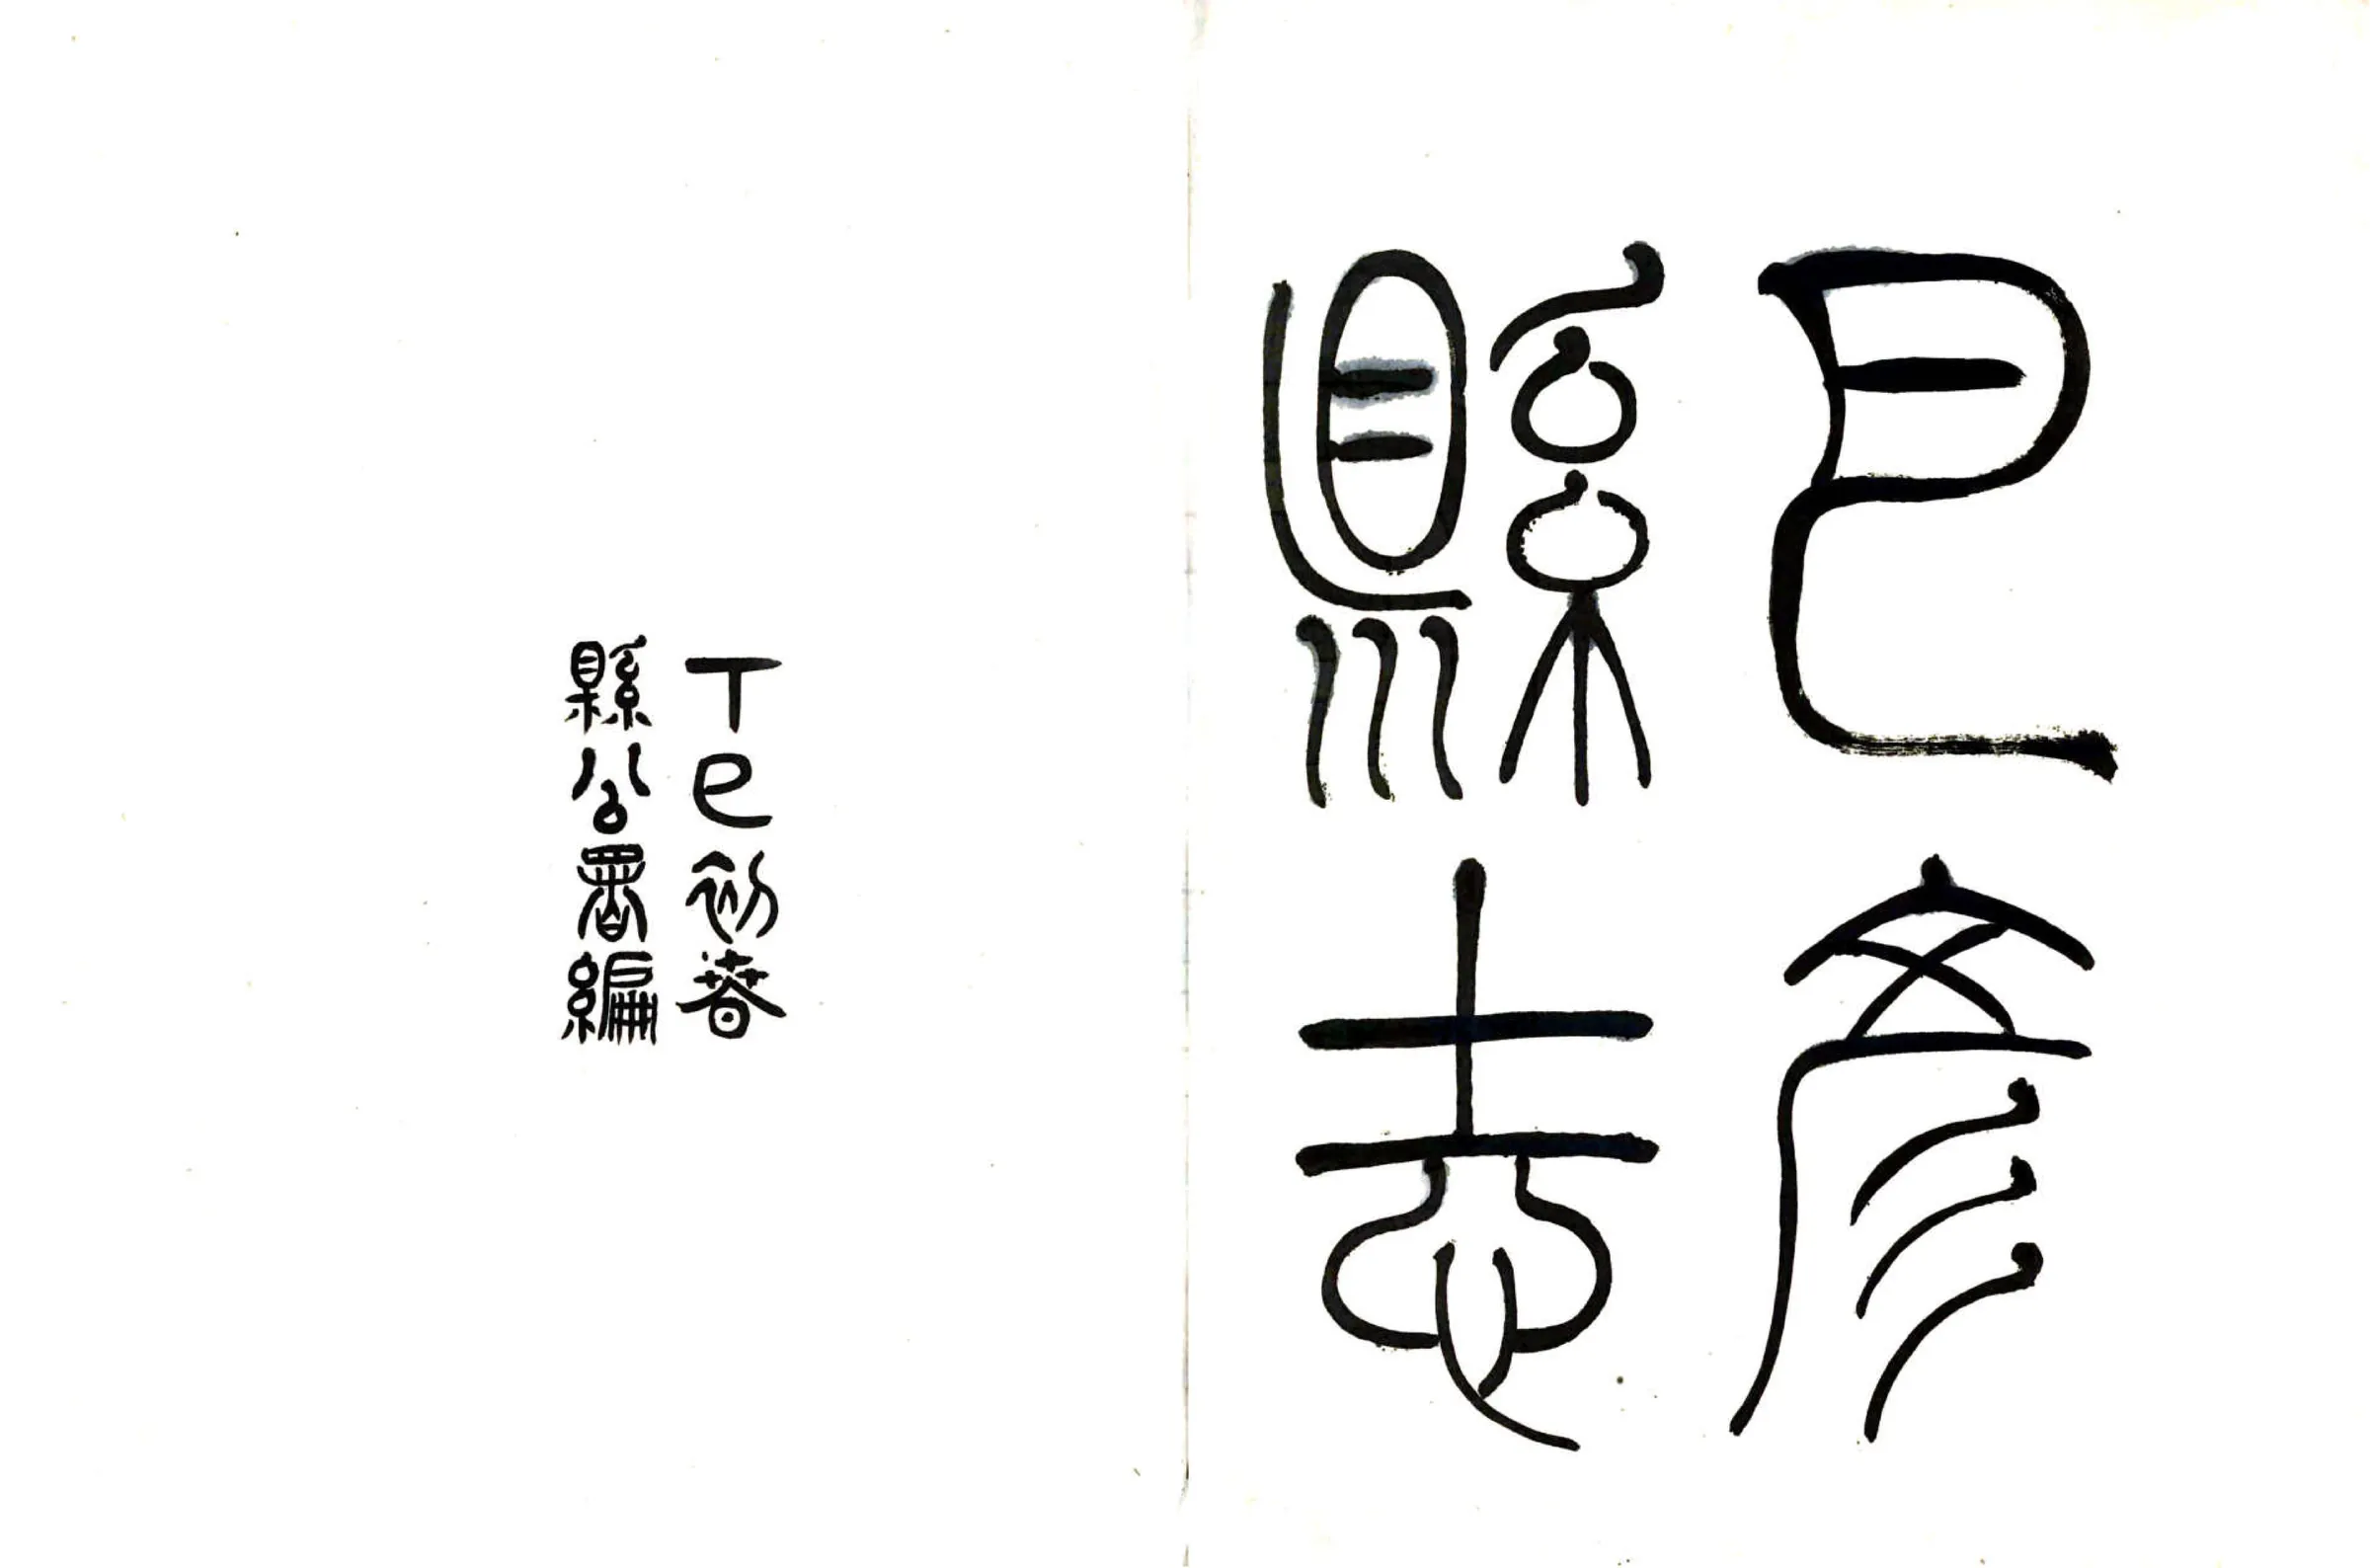 巴彥
縣志
丁巳初春
縣公署編